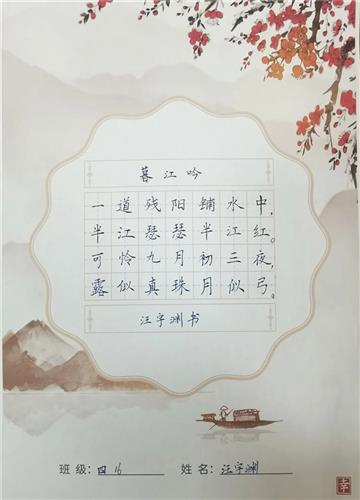 暮江吟
一道残阳铺水中，
半江瑟瑟半江红。
可怜九月初三夜，
露似真珠月似弓。
汪宇渊书
班级：四16 姓名：汪宇渊
幸